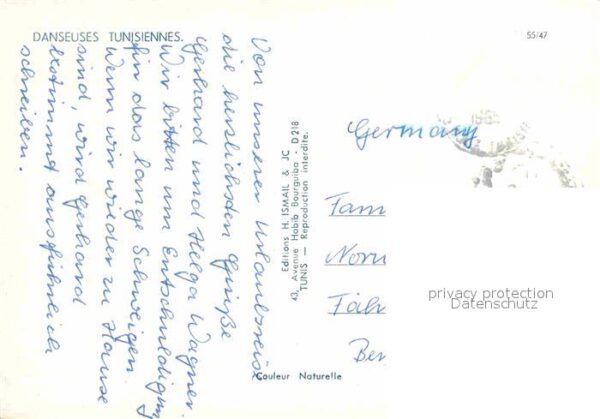 DANSEUSES TUNISIENNES.
55/47
Von unserer Urlaubsreise
die herzlichsten Grüße
Gerhard und Helga Wagner.
Wir bitten um Entschuldigung
für das lange Schweigen.
Wenn wir wieder zu Hause
sind, wird Gerhard
bestimmt ausführlich
schreiben.
Editions H. ISMAIL & JC
43, Avenue Habib Bourguiba - D 218
TUNIS — Reproduction interdite.
Germany
Fam
Norn
Fäh
Ber
privacy protection
Datenschutz
Couleur Naturelle